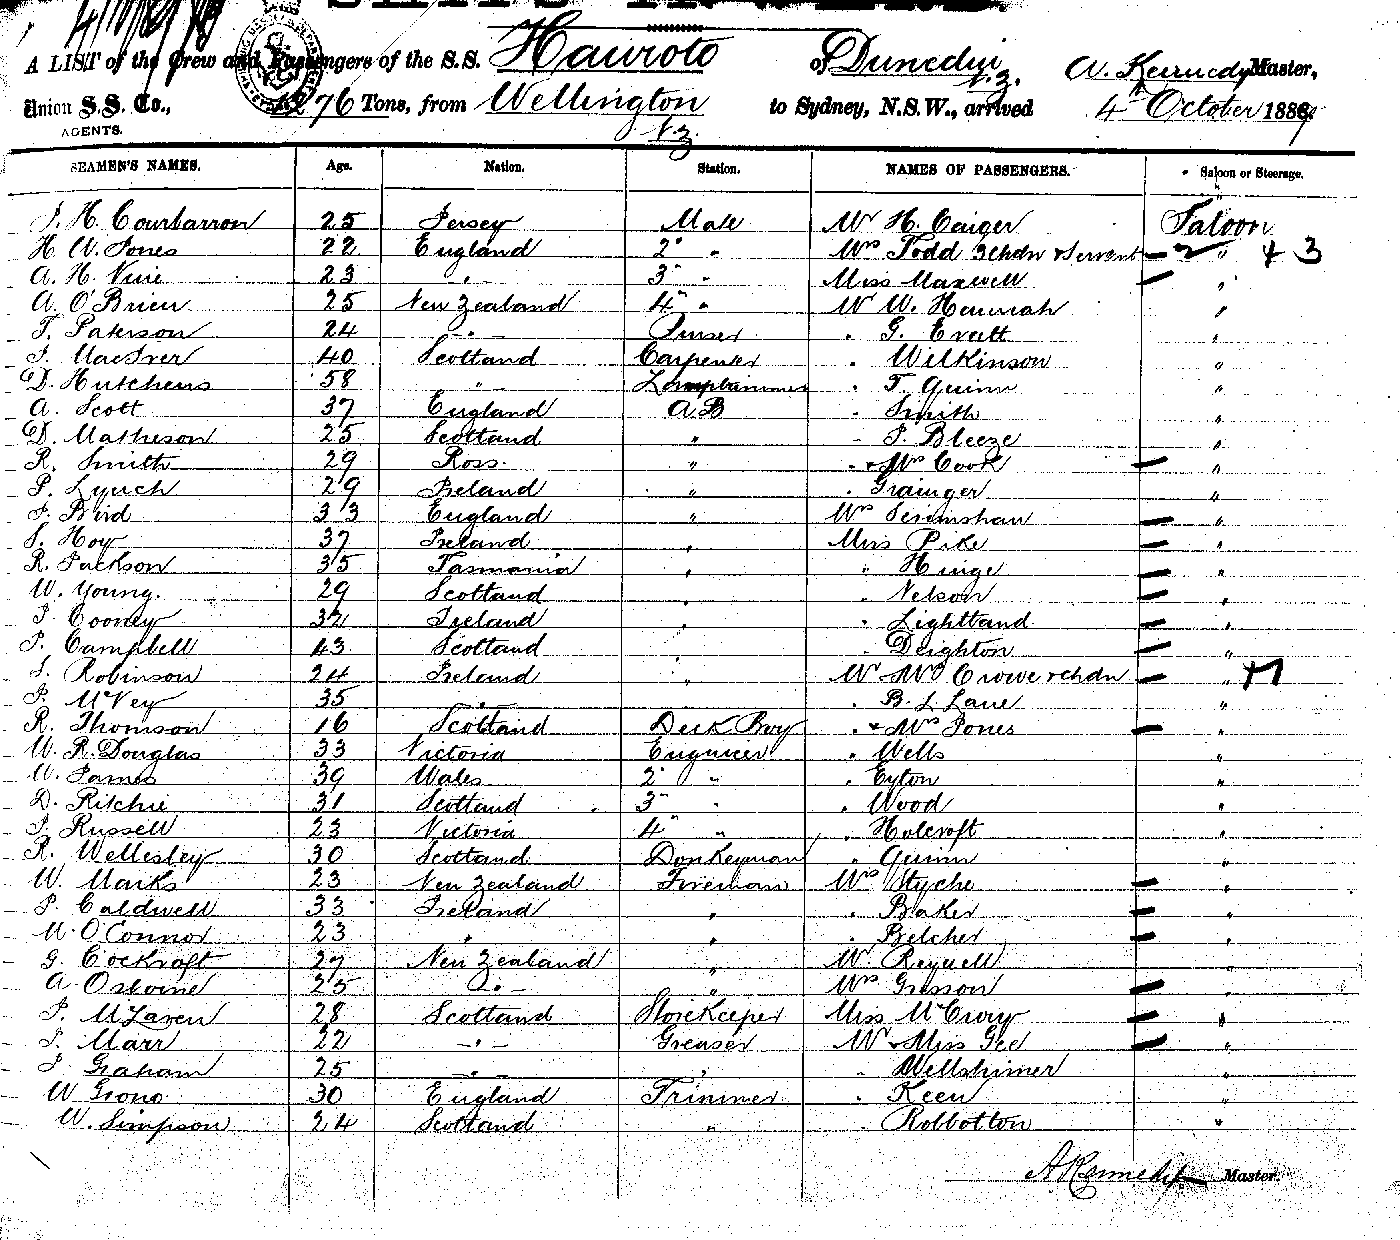 A LIST of the Crew and Passengers of the S.S. Hauroto of Dunedin N.Z. A. Kennedy Master,
Union S.S. Co., 1276 Tons, from Wellington N.Z. to Sydney, N.S.W., arrived 4th October 1889
AGENTS.
SEAMEN'S NAMES. Age. Nation. Station. NAMES OF PASSENGERS. Saloon or Steerage.
J. H. Courbarron 25 Jersey Mate Mr H. Caiger Saloon
H. W. Jones 22 England 2" " Mrs Todd 3 chdn & Servant " + 3
A. H. Vine 23 " 3" " Miss Maxwell "
A. O'Brien 25 New Zealand 4" " Mr W. Hannah "
T. Paterson 24 " Purser " G. Evatt "
J. MacIver 40 Scotland Carpenter " Wilkinson "
D. Hutchens 58 " Lamptrimmer " T. Quinn "
A. Scott 37 England AB " Smith "
D. Matheson 25 Scotland " - J. Bleeze "
R. Smith 29 Ross. " " & Mrs Cook "
P. Lynch 29 Ireland " " Grainger "
J. Bird 33 England " Mrs Scrimshaw "
S. Hoy 37 Ireland " Miss Pike "
R. Jackson 35 Tasmania " " Hinge "
W. Young. 29 Scotland " " Nelson "
J. Cooney 32 Ireland " " Lightband "
P. Campbell 43 Scotland " " Deighton "
S. Robinson 24 Ireland " Mr & Mrs Crowe & chdn "
P. McVey 35 " " B. L. Lane "
R. Thomson 16 Scotland Deck Boy " & Mrs Jones "
W. R. Douglas 33 Victoria Engineer " Wells "
W. James 39 Wales 2" " " Eyton "
D. Ritchie 31 Scotland 3" " " Wood "
J. Russell 23 Victoria 4" " " Holcroft "
R. Wellesley 30 Scotland Donkeyman " Quinn "
W. Marks 23 New Zealand Fireman Mrs Styche "
P. Caldwell 33 Ireland " " Baker "
M. O'Connor 23 " " " Belcher "
G. Cockroft 27 New Zealand " Mr Reynell "
A. Osborne 25 " " Mrs Grisson "
P. McLaren 28 Scotland Storekeeper Miss McCrory "
J. Marr 22 " Greaser Mr & Miss Gee "
J. Graham 25 " " " Wellshimer "
W Grono 30 England Trimmer " Keen "
W. Simpson 24 Scotland " Robbotton "
A Kennedy Master.